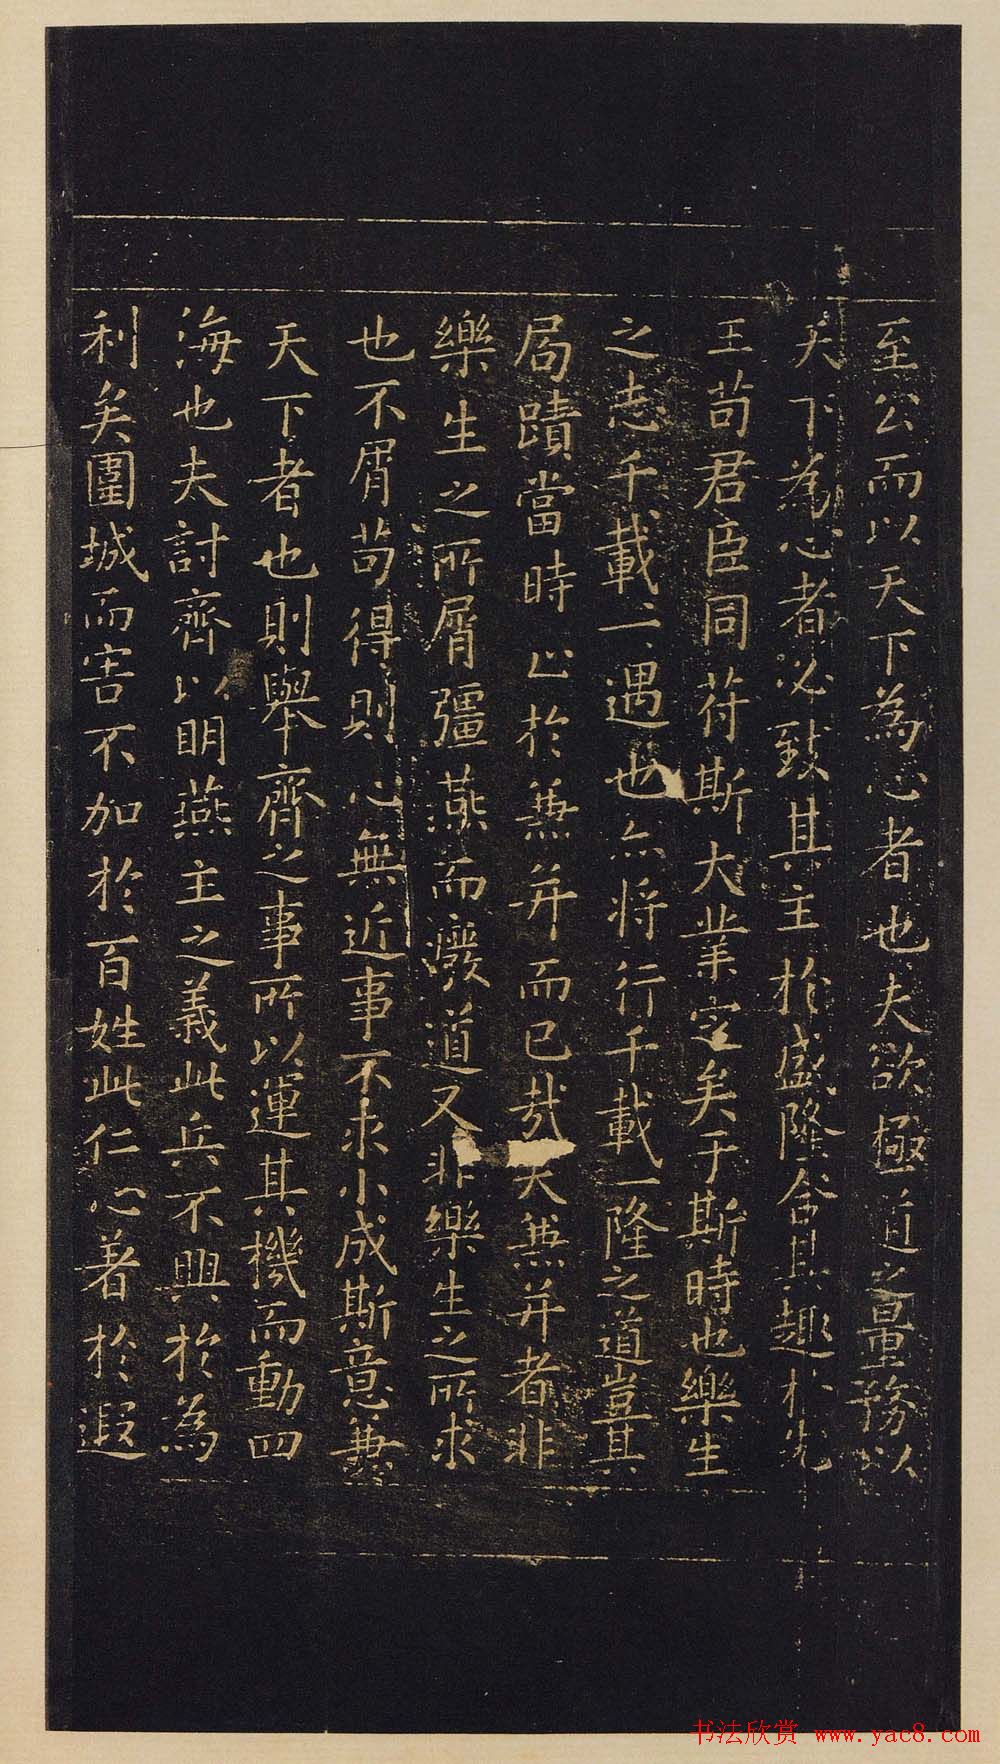 至公而以天下為心者也夫欲極道之量務以
天下為心者必致其主於盛隆合其趣於先
王苟君臣同符斯大業定矣于斯時也樂生
之志千載一遇也亦將行千載一隆之道豈其
局蹟當時止於兼并而已哉夫兼并者非
樂生之所屑彊燕而廢道又非樂生之所求
也不屑苟得則心無近事不求小成斯意兼
天下者也則舉齊之事所以運其機而動四
海也夫討齊以明燕主之義此兵不興於為
利矣圍城而害不加於百姓此仁心著於遐
书法欣赏 www.yac8.com